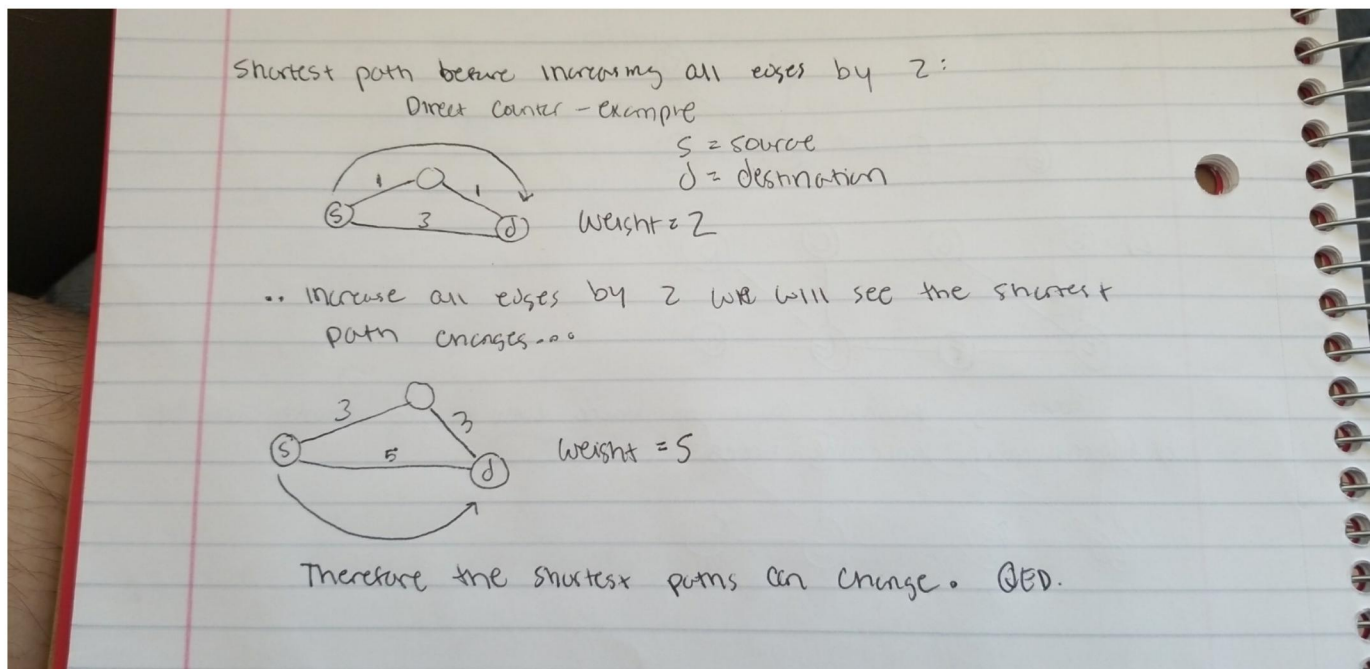 Shortest path before increasing all edges by 2:
Direct counter-example
s = source
d = destination
1 1
s 3 d weight = 2
∴ increase all edges by 2 we will see the shortest
path changes...
3 3
s 5 d weight = 5
Therefore the shortest paths can change. QED.